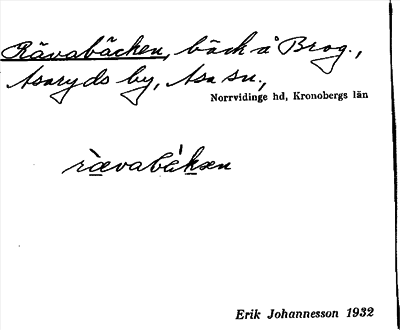 Rävabäcken, bäck å Brog.,
Asaryds by, Asa sn.,
Norrvidinge hd, Kronobergs län
rævabækæn
Erik Johannesson 1932